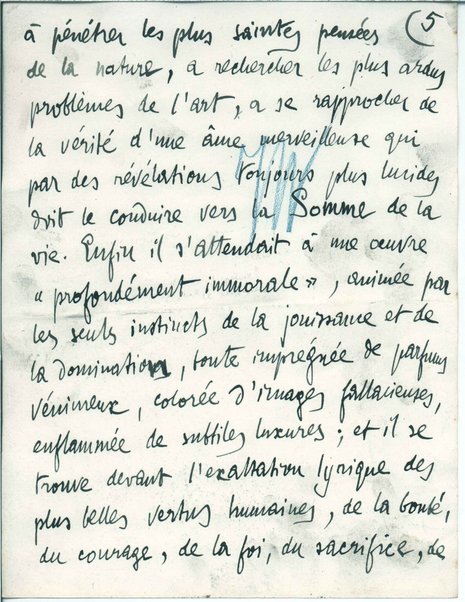 (5
à pénétrer les plus saintes pensées
de la nature, a rechercher les plus ardus
problèmes de l'art, a se rapprocher de
la vérité d'une âme merveilleuse qui
par des révélations toujours plus lucides
doit le conduire vers la Somme de la
vie. Enfin il s'attendait à une œuvre
« profondément immorale », animée par
les seuls instincts de la jouissance et de
la domination, toute imprégnée de parfums
vénimeux, colorée d'images fallacieuses,
enflammée de subtiles luxures ; et il se
trouve devant l'exaltation lyrique des
plus belles vertus humaines, de la bonté,
du courage, de la foi, du sacrifice, de